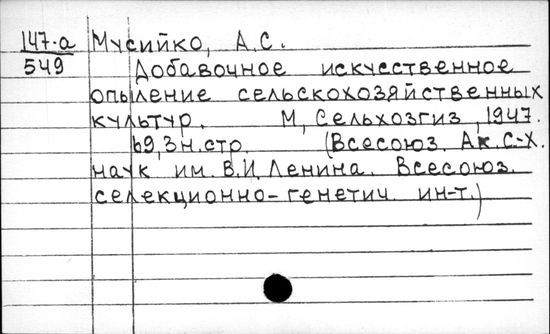 147-а Мусийко, А.С.
549 Добавочное искусственное
опыление сельскохозяйственных
культур. М, Сельхозгиз, 1947.
69, 3н.стр. (Всесоюз. Ак. С-Х.
наук им. В.И. Ленина. Всесоюз.
селекционно-генетич. ин-т.)